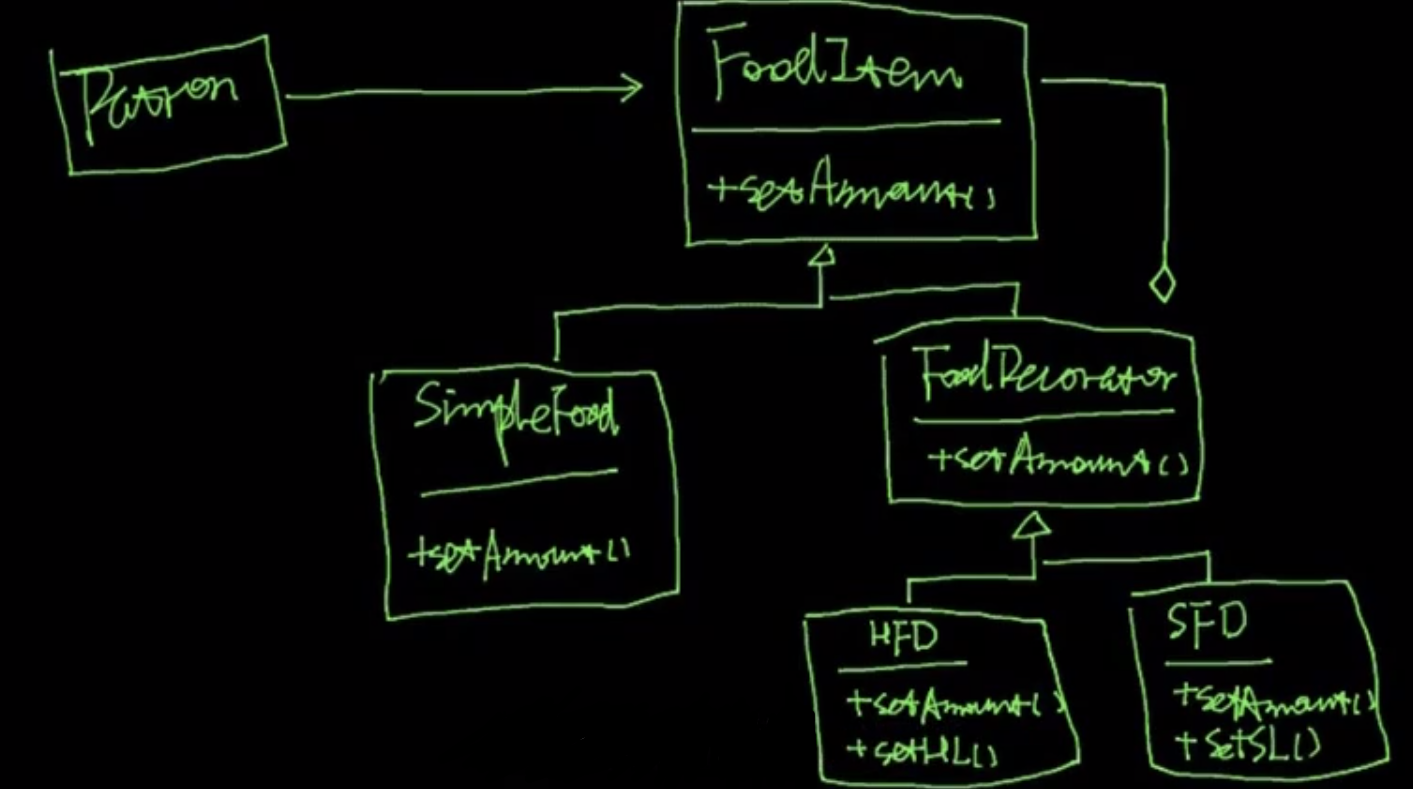 Patron
FoodItem
+setAmount()
SimpleFood
+setAmount()
FoodDecorator
+setAmount()
HFD
+setAmount()
+setHL()
SFD
+setAmount()
+setSL()